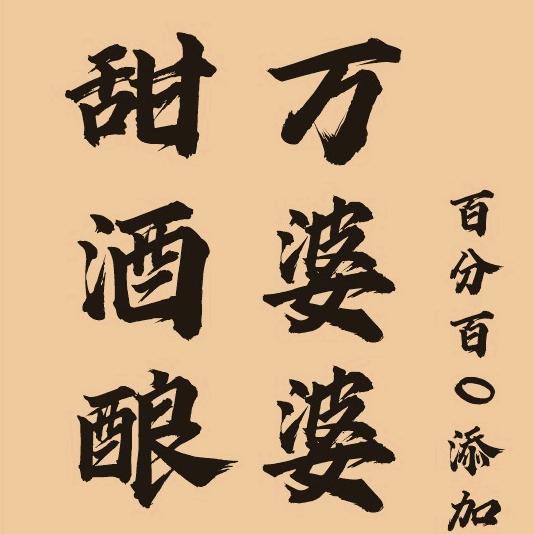 百分百0添加
万婆婆
甜酒酿